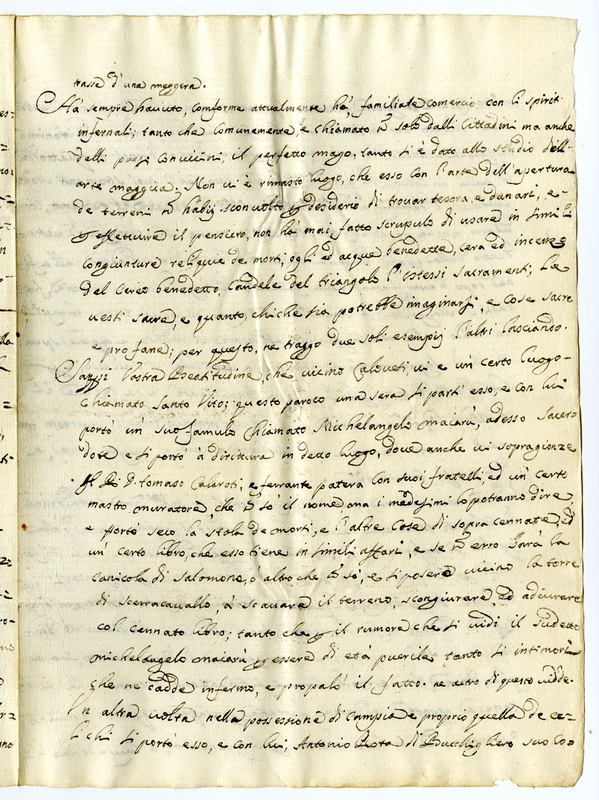 trasse d'una meggera.
Hà sempre havuto, comforme attualmente hà familiare comercio con li spiriti
infernali; tanto che comunemente, è chiamato ñ solo dalli Cittadini ma anche
delli paesi convicini, il perfetto mago, tanto si è dato allo studio dell'
arte maggica. Non vi è rimasto luogo, che esso con l'arte dell'apertura
de terreni ñ habij sconvolto desiderio di trovar tesora, e danari, e-
effettuire il pensiero, non hà mai fatto scrupulo di usare in simili
congiunture reliquie de morti, oglj ed acque benedette, cera ed incenso
del cereo benedetto, Candele del triangolo l'istessi Sacramenti, le
vesti sacre, e quanto, chiche sia potrebbe imaginarsi, e cose sacre
e profane; per questo, ne traggo due soli esempij l'altri lasciando.
Sappi Vostra Beatitudine, che vicino Caloveti, vi e un certo luogo-
chiamato Santo Vito; questo paroco una sera si partì esso, e con lui
portò un suo famulo chiamato Michelangelo maiarù, adesso Sacer
dote e si portò à diritura in detto luogo, dove anche vi sopragionze
D. Tomaso Caliroti, e ferrante patera con suoi fratelli, ed un' certo
mastro muratore che ñ sò il nome ma i medesimi lo potranno dire,
e portò seco la stola de morti, e l'altre cose di sopra cennate, ed
un' certo libro, che esso tiene in simili affari, e se ñ erro sarà la
canicola di Salomone, o altro che ñ sò, e si posero vicino la torre
di Scerracavallo, à scavare il terreno, scongiurare, ed adiurare
col cennato libro; tanto che il rumore che si vidi il sudetto
michelangelo maiarù essere di età puerile tanto si intimorì
che ne cadde infermo, e propalò il fatto. ne altro di questo vidde.
In altra voltra nella possessione di Campia e proprio quella de ce-
li chi si portò esso, e con lui, Antonio Rota di Bucchigliero suo Co-